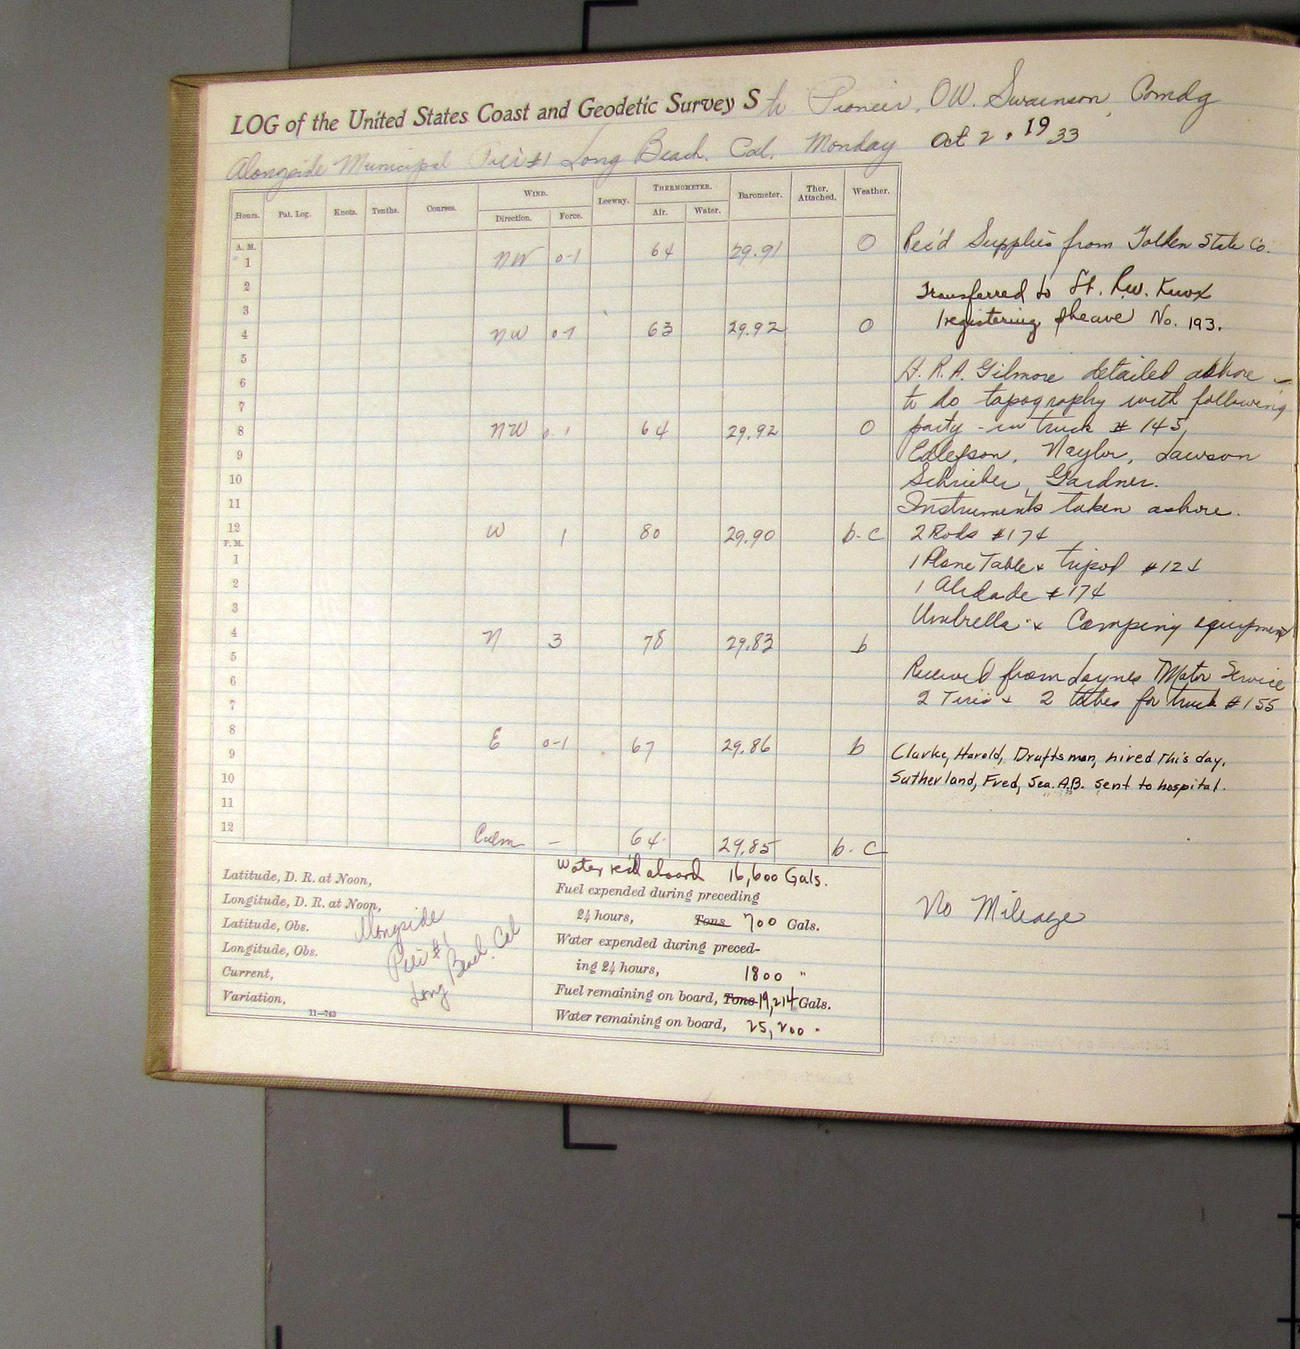 LOG of the United States Coast and Geodetic Survey Str Pioneer, O.W. Swainson, Comdg
Alongside Municipal Pier #1 Long Beach, Cal. Monday Oct 2, 1933
Hours. Pat. Log. Knots. Tenths. Courses. WIND. Direction. Force. Leeway. THERMOMETER. Air. Water. Barometer. Ther. Attached. Weather.
A. M.
1 NW 0-1 64 29.91 O
2
3
4 NW 0-1 63 29.92 O
5
6
7
8 NW 0-1 64 29.92 O
9
10
11
12 W 1 80 29.90 b-c
P. M.
1
2
3
4 N 3 78 29.83 b
5
6
7
8 E 0-1 67 29.86 b
9
10
11
12 Calm - 64 29.85 b-c
Rec'd Supplies from Golden State Co.
Transferred to Lt. R.W. Knox
1 registering sheave No. 193.
Lt. R.A. Gilmore detailed ashore
to do topography with following
party - in truck # 145,
Edlefson, Naylor, Lawson
Schrieber, Gardner.
Instruments taken ashore.
2 Rods #174
1 Plane Table & tripod #124
1 Alidade #174
Umbrella & Camping equipment
Received from Motor Service
2 Tires & 2 tubes for truck #155
Clarke, Harold, Draftsman, hired this day.
Sutherland, Fred, Sea. A.B. sent to hospital.
No Mileage
Latitude, D. R. at Noon,
Longitude, D. R. at Noon,
Latitude, Obs.
Longitude, Obs.
Current,
Variation,
Alongside
Pier #1
Long Beach. Cal
11-763
Water rec'd aboard 16,600 Gals.
Fuel expended during preceding
24 hours, Tons 700 Gals.
Water expended during preced-
ing 24 hours, 1800 "
Fuel remaining on board, Tons 19,214 Gals.
Water remaining on board, 25,200 "